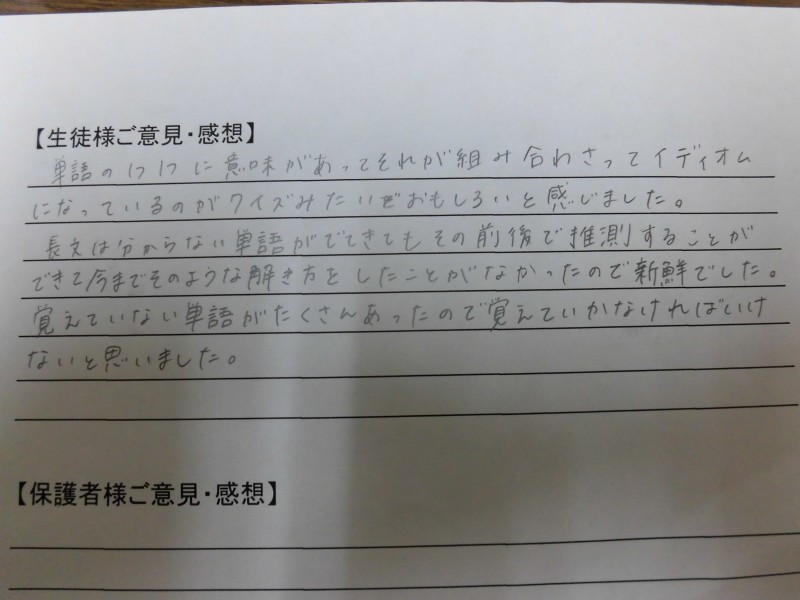 【生徒様ご意見・感想】
単語の1つ1つに意味があってそれが組み合わさってイディオム
になっているのがクイズみたいでおもしろいと感じました。
長文は分からない単語がでてきてもその前後で推測することが
できて今までそのような解き方をしたことがなかったので新鮮でした。
覚えていない単語がたくさんあったので覚えていかなければいけ
ないと思いました。
【保護者様ご意見・感想】